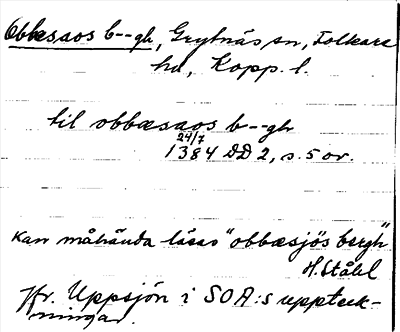 Obbæsaos b--gh, Grytnäs sn, Folkare
hd, Kopp. l.
til obbæsaos b--gh
24/7
1384 DD 2, s. 5 or.
Kan måhända läsas "obbæsjös bergh"
H. Ståhl
Jfr. Uppsjön i SOA:s uppteck-
ningar.